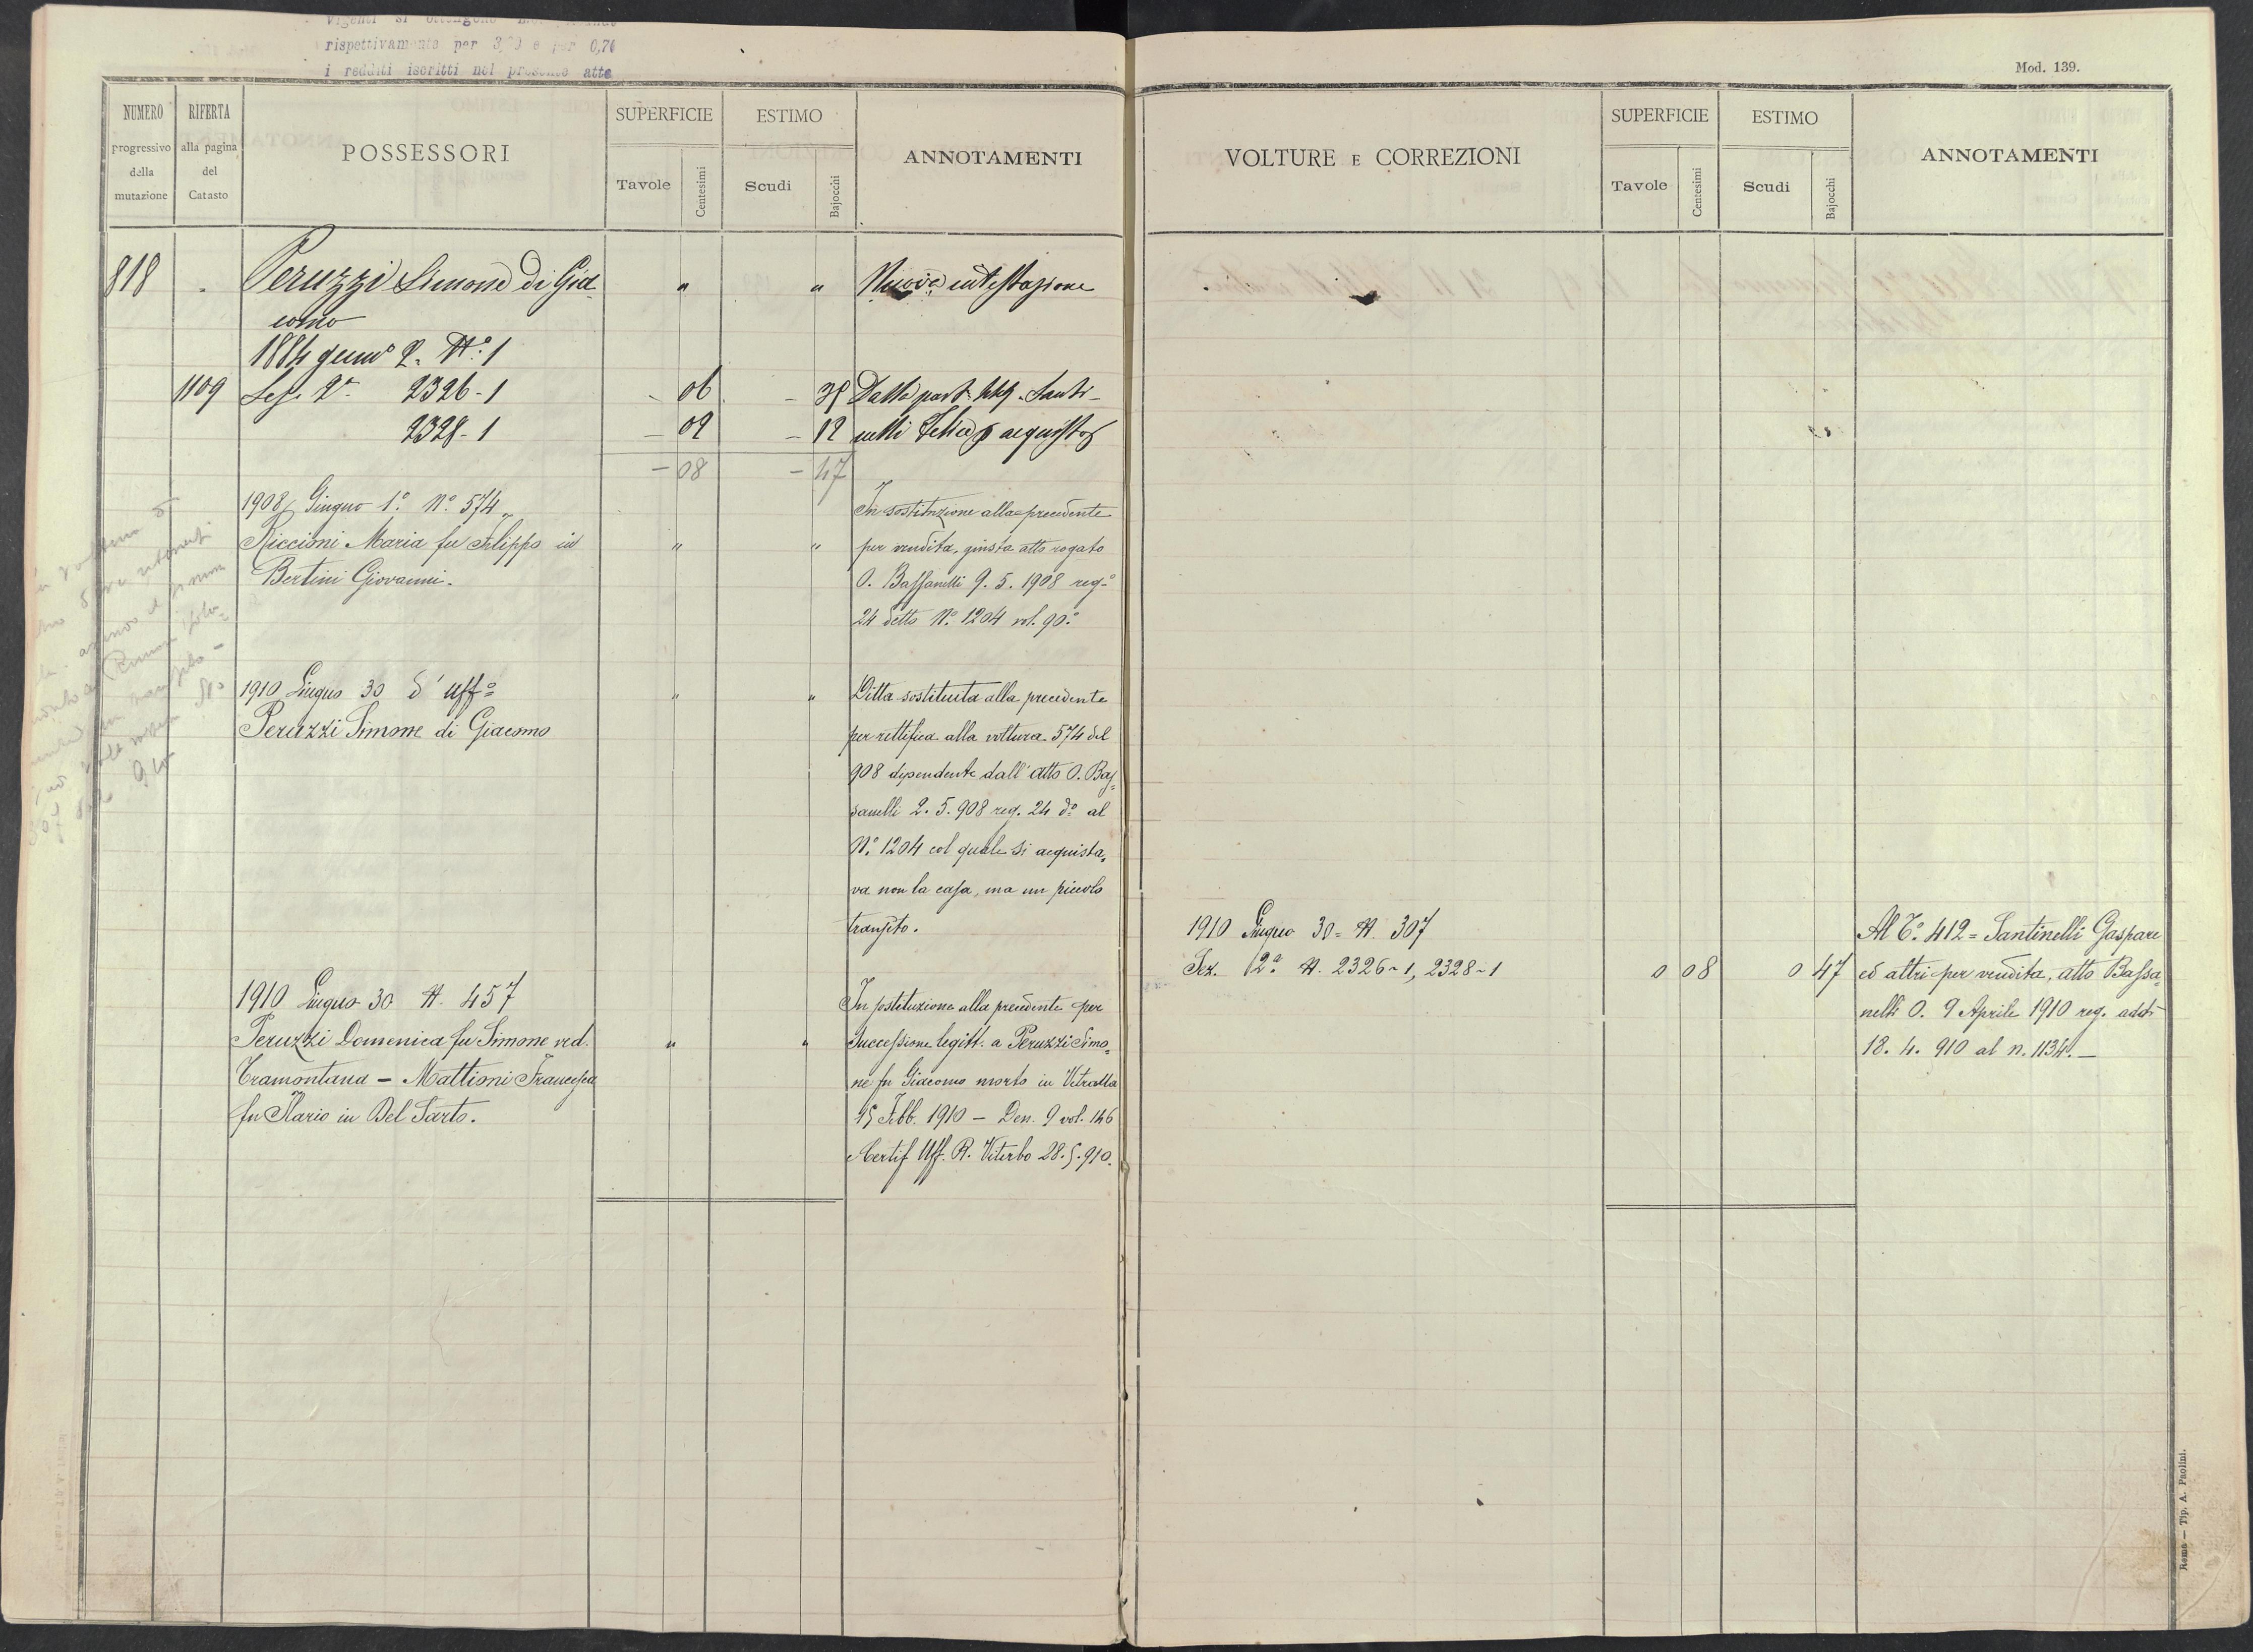 vigenti si ottengono
rispettivamente per 3,?0 e per 0,70
i redditi iscritti nel presente atto
Mod. 139.
NUMERO progressivo della mutazione
RIFERTA alla pagina del Catasto
POSSESSORI
SUPERFICIE
Tavole
Centesimi
ESTIMO
Scudi
Bajocchi
ANNOTAMENTI
VOLTURE E CORREZIONI
SUPERFICIE
Tavole
Centesimi
ESTIMO
Scudi
Bajocchi
ANNOTAMENTI
818 Peruzzi Simone di Gia- " " Nuova intestazione
como
1884 genn° 2. N.° 1
1109 Sez. 2ª 2326-1 - 06 - 35 Dalla part. 449. Santi-
2328-1 - 02 - 12 nelli Felice p acquisto
- 08 - 47
1908 Giugno 1.° N.° 574
Riccioni Maria fu Filippo in " "
Bertini Giovanni.
In sostituzione alla precedente
per vendita, giusta atto rogato
O. Bassanelli 9. 5. 1908 reg.°
24 detto N.° 1204 vol. 90.°
1910 Giugno 30 d'Uff.° " "
Peruzzi Simone di Giacomo
Ditta sostituita alla precedente
per rettifica alla voltura 574 del
908 dipendente dall'atto O. Bas=
sanelli 2. 5. 908 reg. 24 d.° al
N.° 1204 col quale si acquista=
va non la casa, ma un piccolo
transito.
1910 Giugno 30 N. 457
Peruzzi Domenica fu Simone ved. " "
Tramontana - Mattioni Francesca
fu Ilario in Del Sarto.
In sostituzione alla precedente per
Successione legitt. a Peruzzi Simo=
ne fu Giacomo morto in Vetralla
15 Febb. 1910 - Den. 9 vol. 146
Certif Uff. R. Viterbo 28. 5. 910.
1910 Giugno 30 = N. 307
Sez. 2ª N. 2326-1, 2328-1 0 08 0 47
Al C.° 412 = Santinelli Gaspare
ed altri per vendita, atto Bassa=
nelli O. 9 Aprile 1910 reg. addì
18. 4. 910 al n. 1134. -
Roma — Tip. A. Paolini.